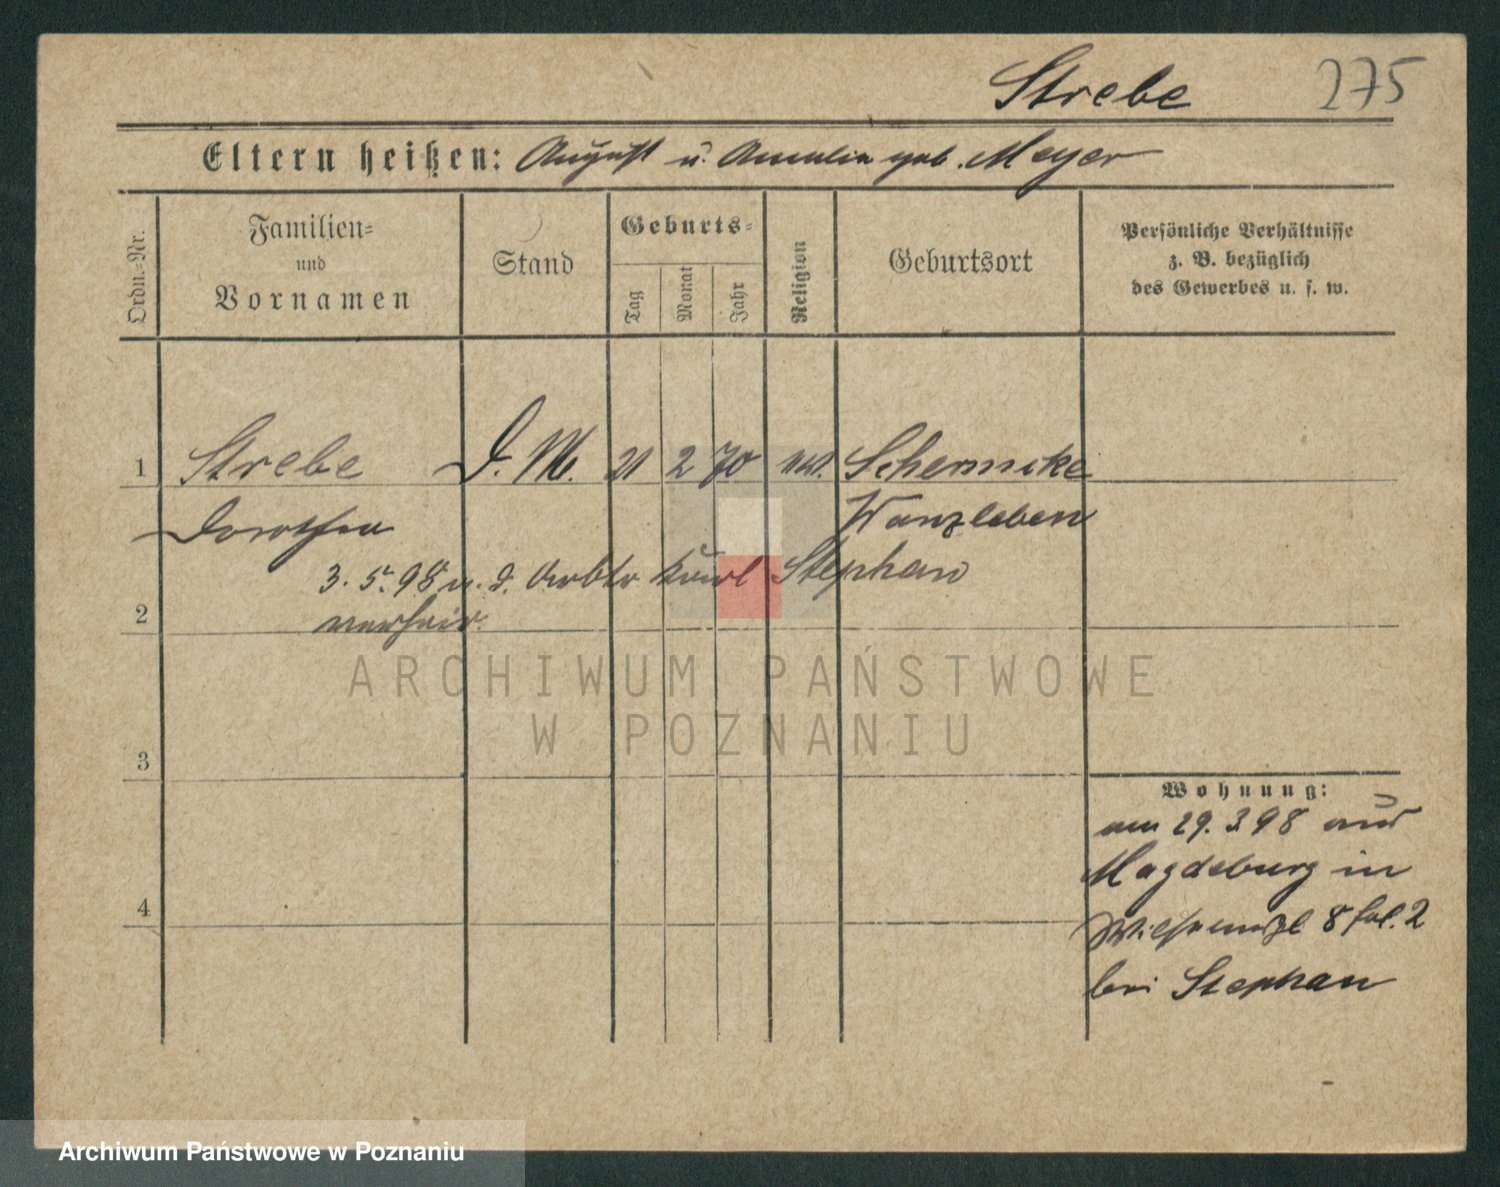 Strebe 275
Eltern heißen: August u. Amalie geb. Meyer
Ordn.=Nr.
Familien=
und
Vornamen
Stand
Geburts=
Tag
Monat
Jahr
Religion
Geburtsort
Persönliche Verhältnisse
z. B. bezüglich
des Gewerbes u. s. w.
1 Strebe D. M. 21 2 70 ev. Schermcke
Dorothea Wanzleben
3. 5. 98 m. d. Arbtr. Karl Stephan
2 verheir.
ARCHIWUM PAŃSTWOWE
W POZNANIU
3
Wohnung:
am 29. 3 98 aus
Magdeburg in
4 8 bei Stephan
Archiwum Państwowe w Poznaniu